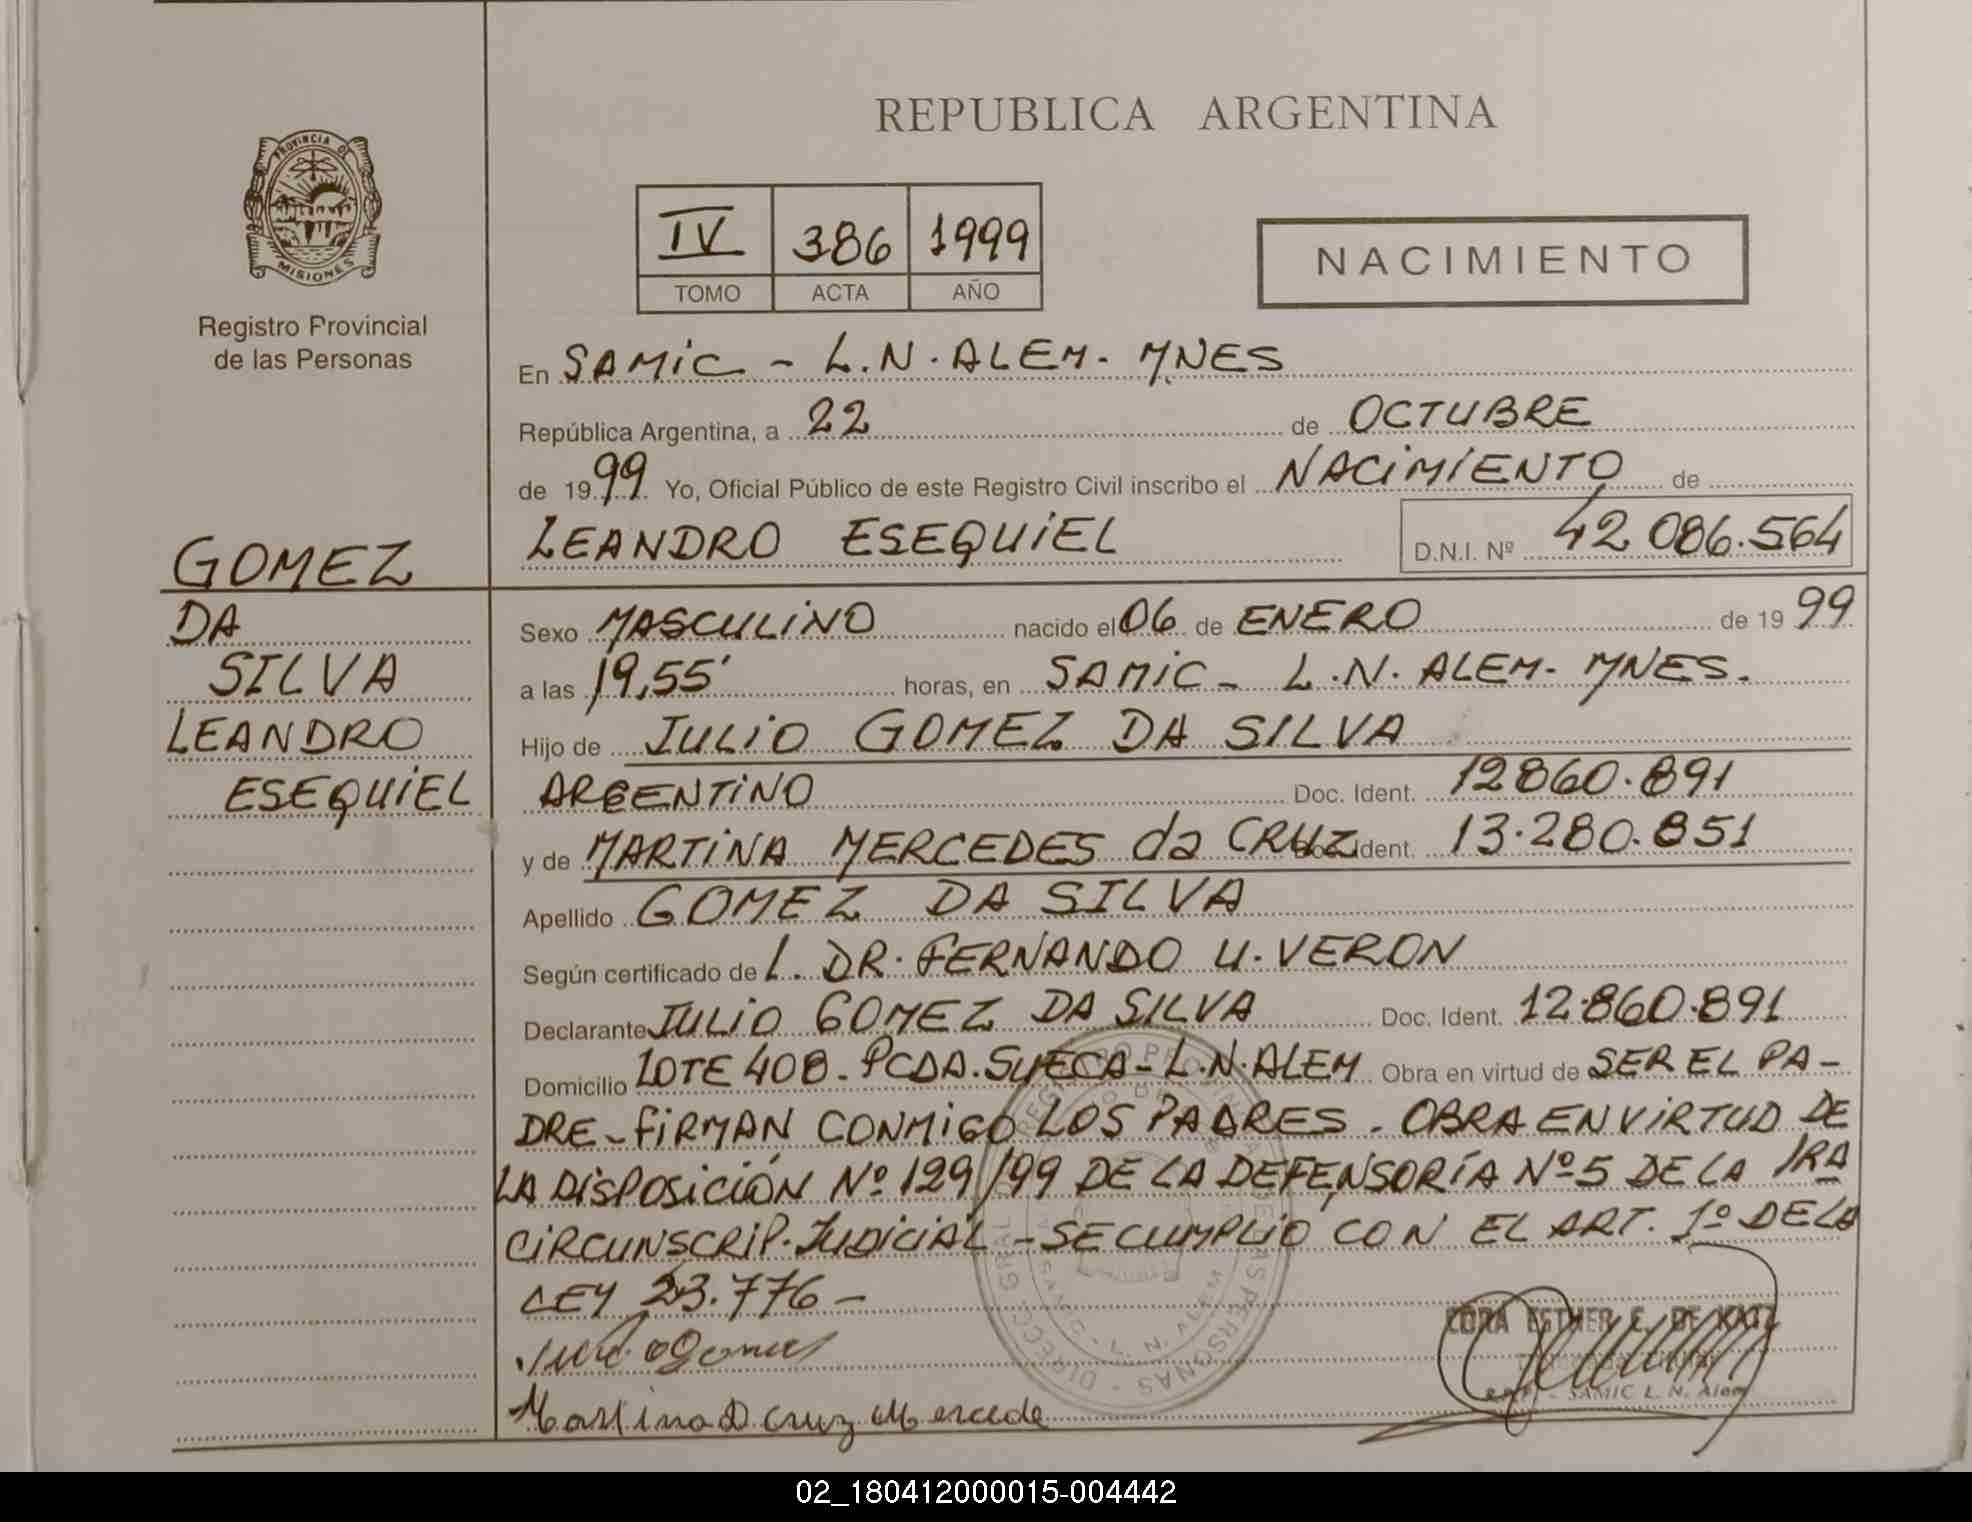 REPUBLICA ARGENTINA
PROVINCIA DE
MISIONES
Registro Provincial
de las Personas
IV 386 1999
TOMO ACTA AÑO
NACIMIENTO
En SAMIC - L.N. ALEM - MNES
República Argentina, a 22 de OCTUBRE
de 1999 Yo, Oficial Público de este Registro Civil inscribo el NACIMIENTO de
LEANDRO ESEQUIEL D.N.I. Nº 42 086.564
GOMEZ
DA
SILVA
LEANDRO
ESEQUIEL
Sexo MASCULINO nacido el 06 de ENERO de 19 99
a las 19,55' horas, en SAMIC - L.N. ALEM - MNES.
Hijo de JULIO GOMEZ DA SILVA
ARGENTINO Doc. Ident. 12860.891
y de MARTINA MERCEDES da CRUZ Doc. Ident. 13.280.851
Apellido GOMEZ DA SILVA
Según certificado de L. DR. FERNANDO U. VERON
Declarante JULIO GOMEZ DA SILVA Doc. Ident. 12.860.891
Domicilio LOTE 408 - PCDA. SUECA - L.N. ALEM Obra en virtud de SER EL PA-
DRE - FIRMAN CONMIGO LOS PADRES - OBRA EN VIRTUD DE
LA DISPOSICIÓN Nº 129/99 DE LA DEFENSORÍA Nº 5 DE LA 1RA
CIRCUNSCRIP. JUDICIAL - SE CUMPLIO CON EL ART. 1º DE LA
LEY 23.776 -
CORA ESTHER E. DE KATZ
SAMIC L. N. Alem
Martina D cruz Mercede
02_180412000015-004442